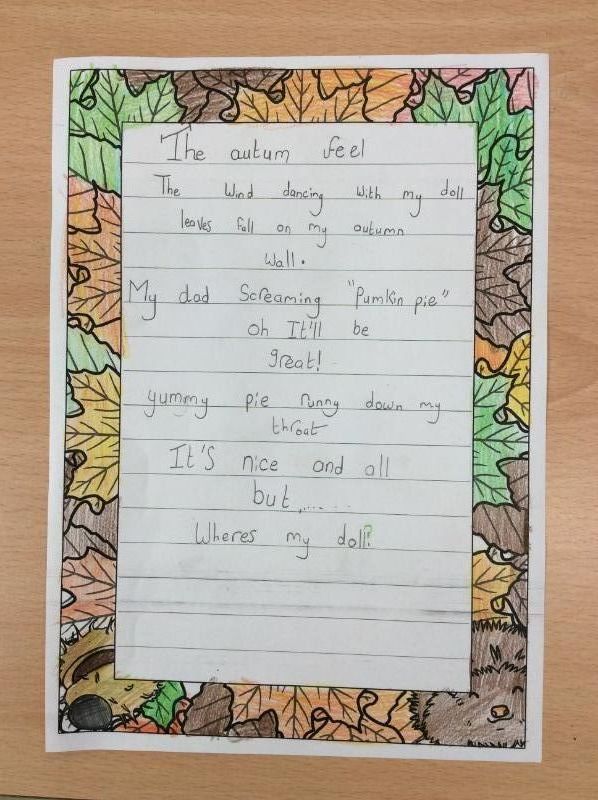 The autum feel
The wind dancing with my doll
leaves fall on my autumn
wall.
My dad screaming "Pumkin pie"
oh It'll be
great!
yummy pie runny down my
throat
It's nice and all
but ......
Wheres my doll?